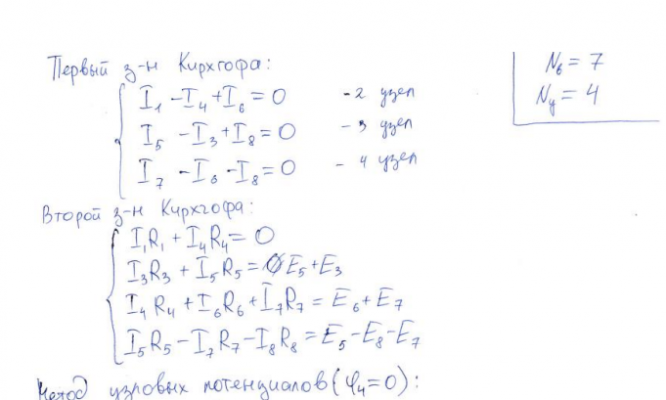 Первый з-н Кирхгофа:
I₁ - I₄ + I₆ = 0 - 2 узел
I₅ - I₃ + I₈ = 0 - 3 узел
I₇ - I₆ - I₈ = 0 - 4 узел
N_в = 7
N_у = 4
Второй з-н Кирхгофа:
I₁R₁ + I₄R₄ = 0
I₃R₃ + I₅R₅ = E₅ + E₃
I₄R₄ + I₆R₆ + I₇R₇ = E₆ + E₇
I₅R₅ - I₇R₇ - I₈R₈ = E₅ - E₈ - E₇
Метод узловых потенциалов (φ₄ = 0):